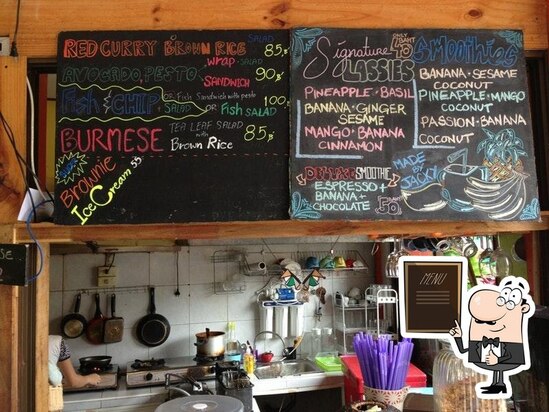 RED CURRY & BROWN RICE SALAD 85.-
wrap - SALAD
AVOCADO, PESTO SANDWICH 90.-
Fish & CHIP OR Fish Sandwich with pesto 100.-
SALAD OR Fish SALAD
BURMESE TEA LEAF SALAD 85.-
with
Brown Rice
Brownie
Ice Cream 55.-
Signature ONLY 40 BAHT
LASSIES
PINEAPPLE + BASIL
BANANA + GINGER
SESAME
MANGO + BANANA
CINNAMON
SMOOTHIE
ESPRESSO +
BANANA +
CHOCOLATE 50.-
SMOOTHIES
BANANA + SESAME
COCONUT
PINEAPPLE + MANGO
COCONUT
PASSION + BANANA
COCONUT
MADE
BY
JACKY
MENU